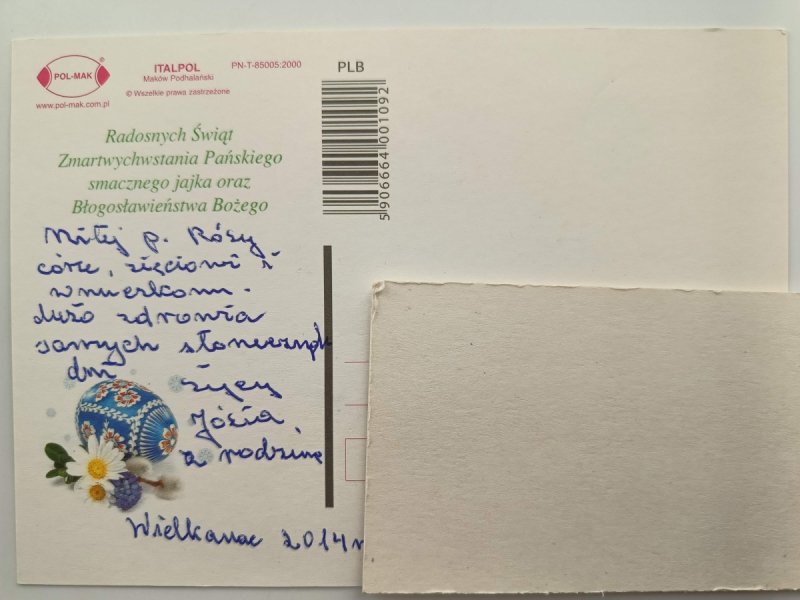 POL-MAK
®
www.pol-mak.com.pl
ITALPOL
Maków Podhalański
© Wszelkie prawa zastrzeżone
PN-T-85005:2000
PLB
5 906664 001092
Radosnych Świąt
Zmartwychwstania Pańskiego
smacznego jajka oraz
Błogosławieństwa Bożego
Miłej p. Róży
córce, zięciowi i
wnuerkom.
dużo zdrowia
samych słonecznych
dni
życzy
Józia,
z rodziną
Wielkanoc 2014 r